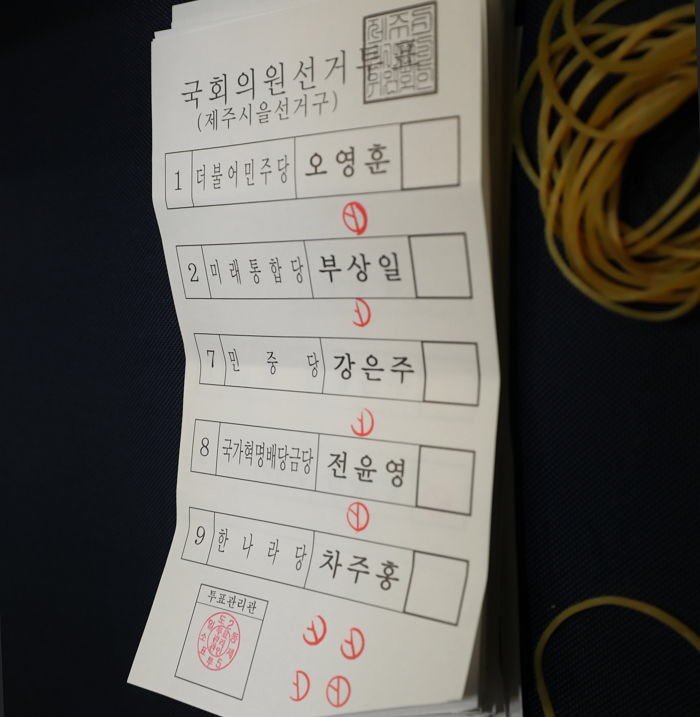 국회의원선거투표
(제주시을선거구)
1 더불어민주당 오영훈
2 미래통합당 부상일
7 민중당 강은주
8 국가혁명배당금당 전윤영
9 한나라당 차주홍
투표관리관